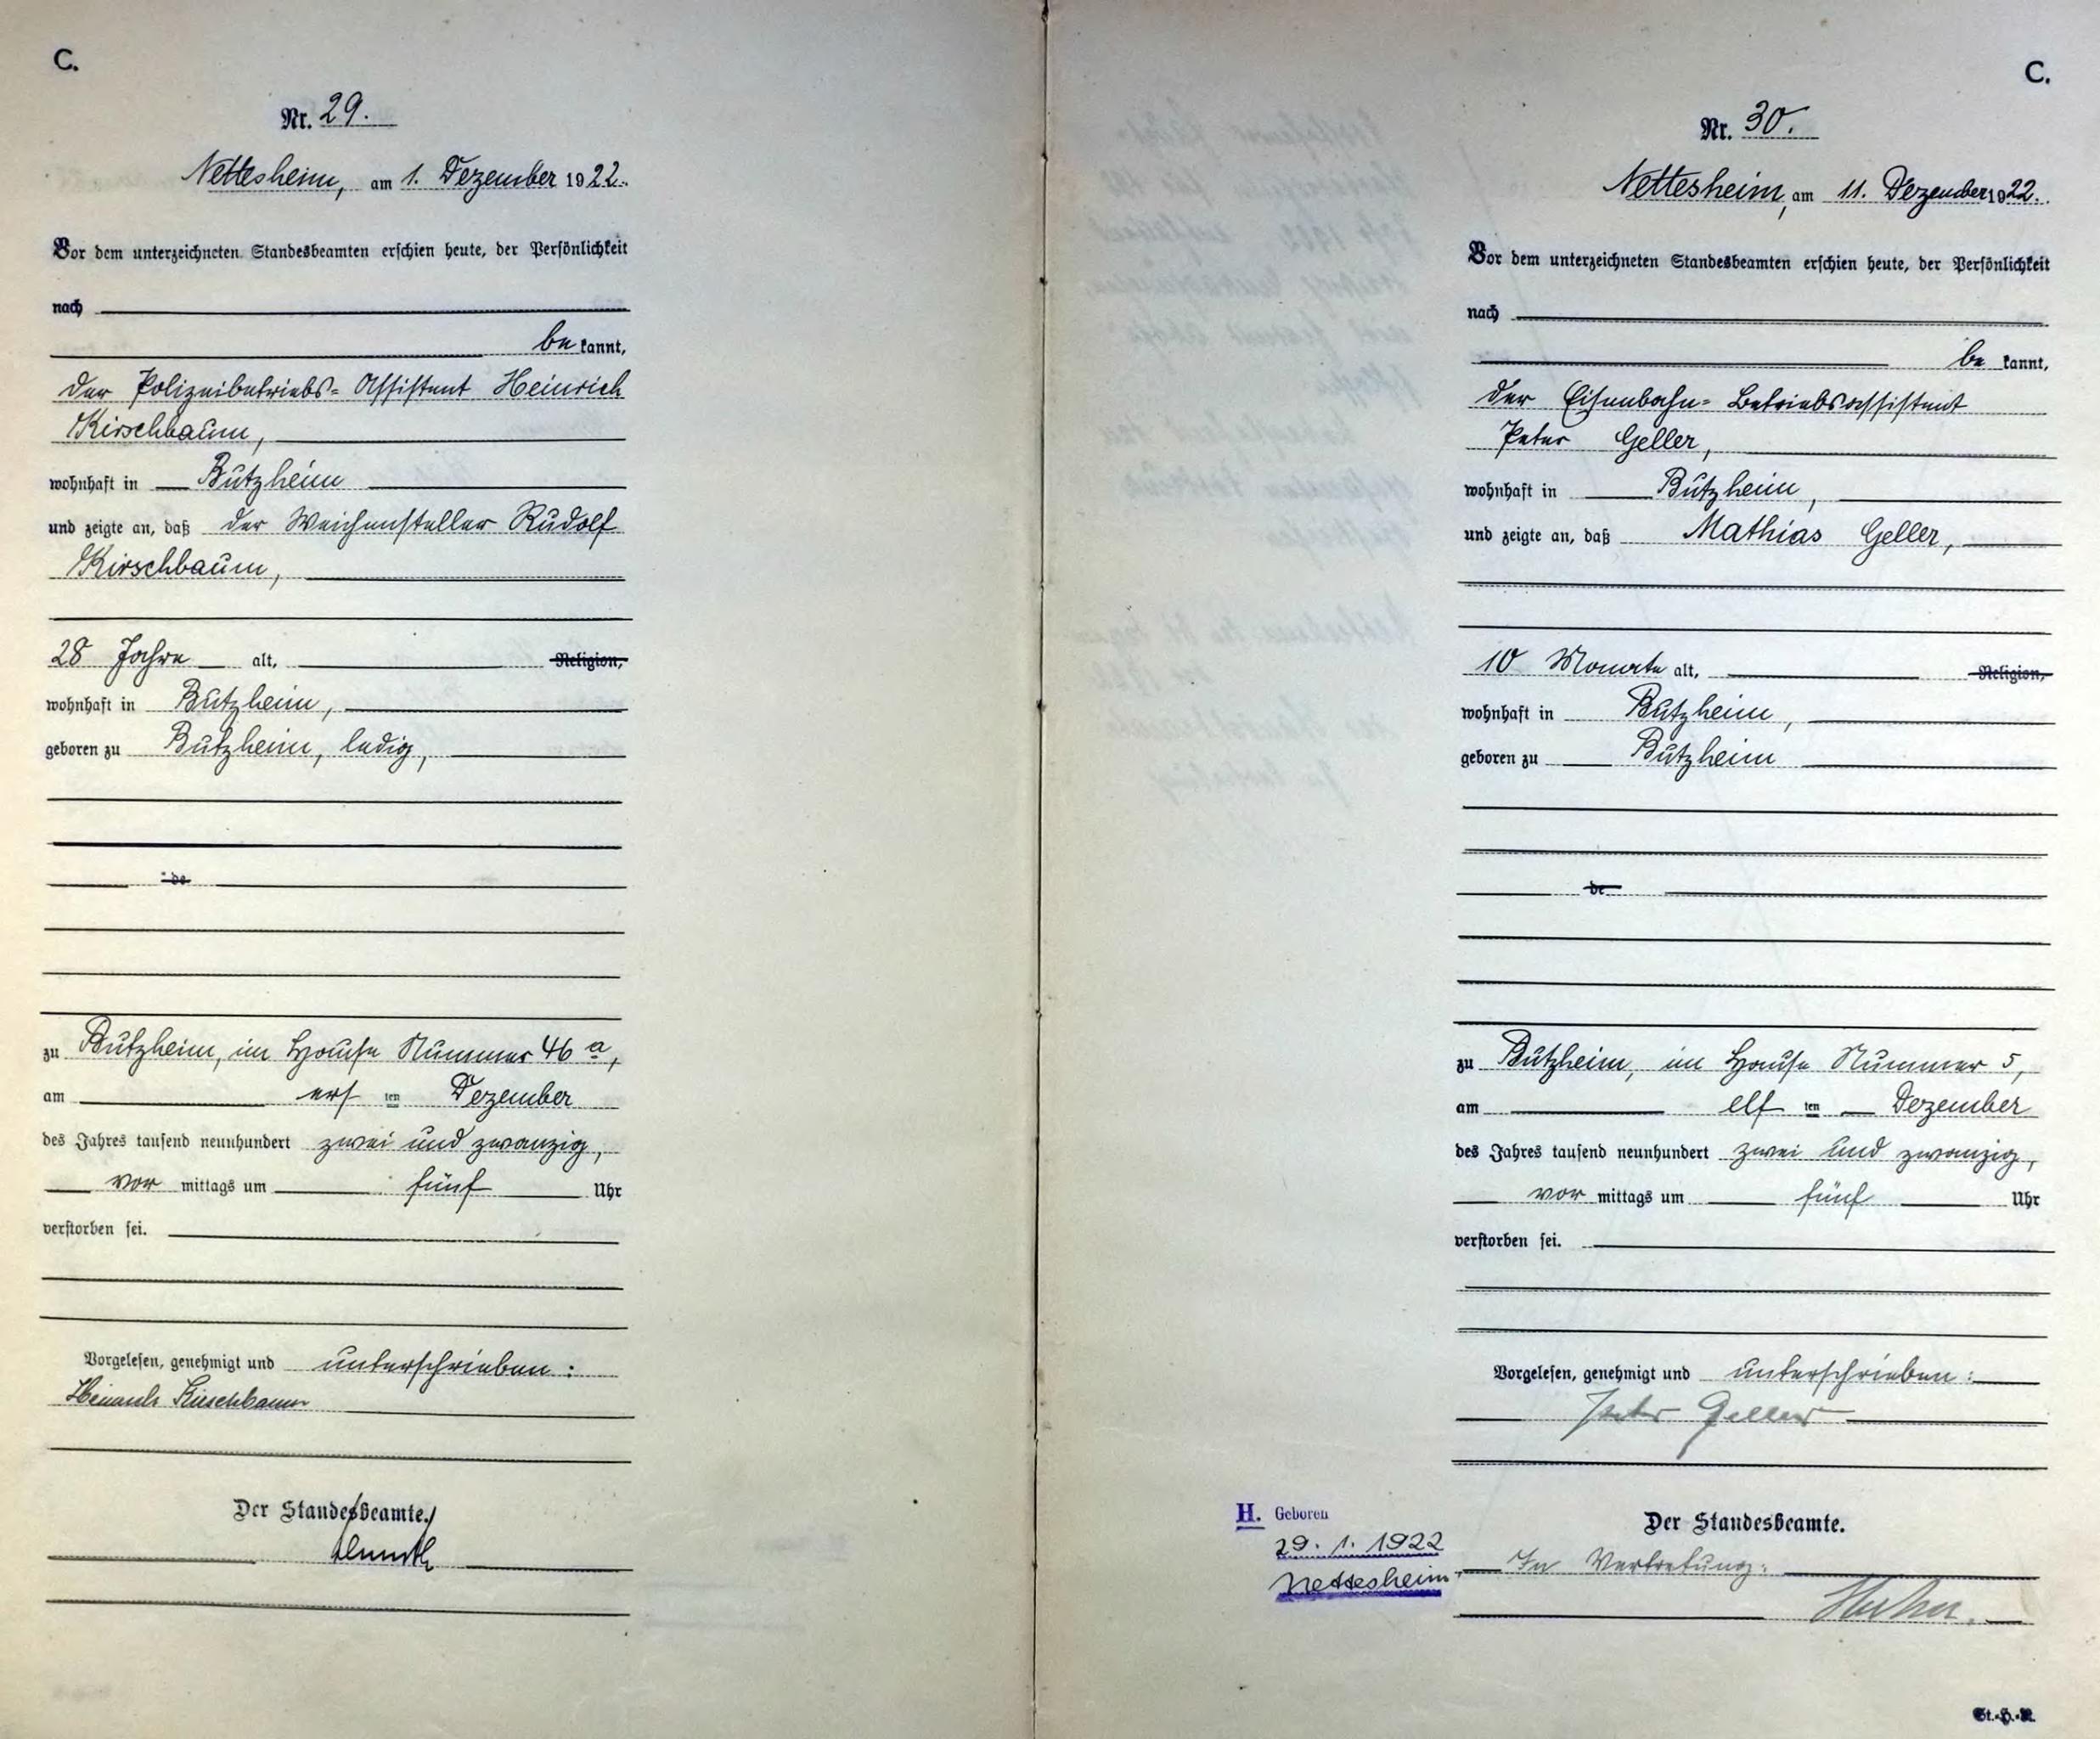 C.
Nr. 29.
Nettesheim, am 1. Dezember 1922.
Vor dem unterzeichneten Standesbeamten erschien heute, der Persönlichkeit
nach
be kannt,
der Polizeibetriebs-Assistent Heinrich
Kirschbaum,
wohnhaft in Butzheim
und zeigte an, daß der Weichensteller Rudolf
Kirschbaum,
28 Jahre alt, Religion,
wohnhaft in Butzheim,
geboren zu Butzheim, ledig,
de
zu Butzheim, im Hause Nummer 46 a,
am ersten Dezember
des Jahres tausend neunhundert zwei und zwanzig,
vor mittags um fünf Uhr
verstorben sei.
Vorgelesen, genehmigt und unterschrieben:
Heinrich Kirschbaum
Der Standesbeamte.
C.
Nr. 30.
Nettesheim, am 11. Dezember 1922.
Vor dem unterzeichneten Standesbeamten erschien heute, der Persönlichkeit
nach
be kannt,
der Eisenbahn-Betriebsassistent
Peter Geller,
wohnhaft in Butzheim,
und zeigte an, daß Mathias Geller,
10 Monate alt, Religion,
wohnhaft in Butzheim,
geboren zu Butzheim
de
zu Butzheim, im Hause Nummer 5,
am elften Dezember
des Jahres tausend neunhundert zwei und zwanzig,
vor mittags um fünf Uhr
verstorben sei.
Vorgelesen, genehmigt und unterschrieben:
Peter Geller
Der Standesbeamte.
In Vertretung:
H. Geboren
29. 1. 1922
Nettesheim
St.-H.-R.